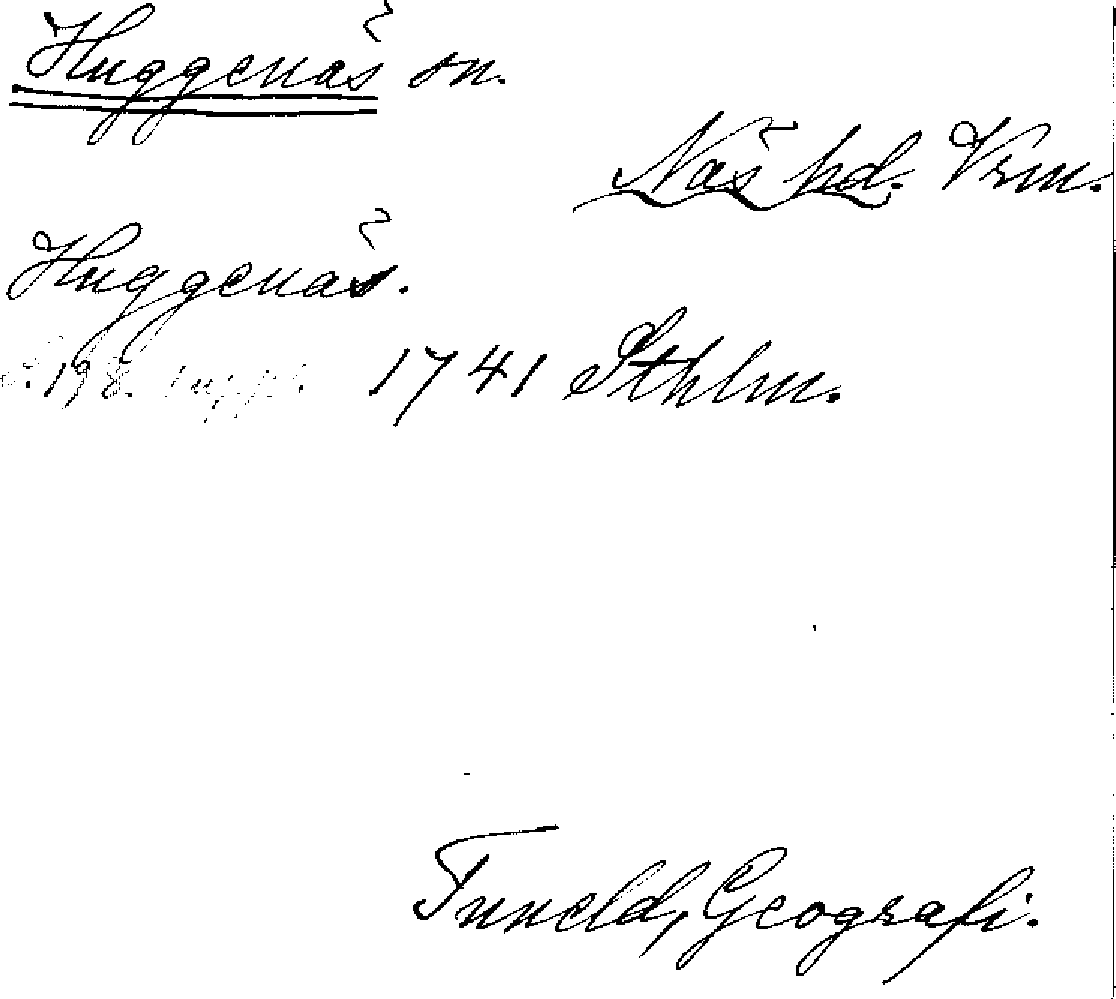 Huggenäs sn.
Näs hd. Vrm.
Huggenäs.
s. 198. suppl. 1741 Sthlm.
Tuneld, Geografi.